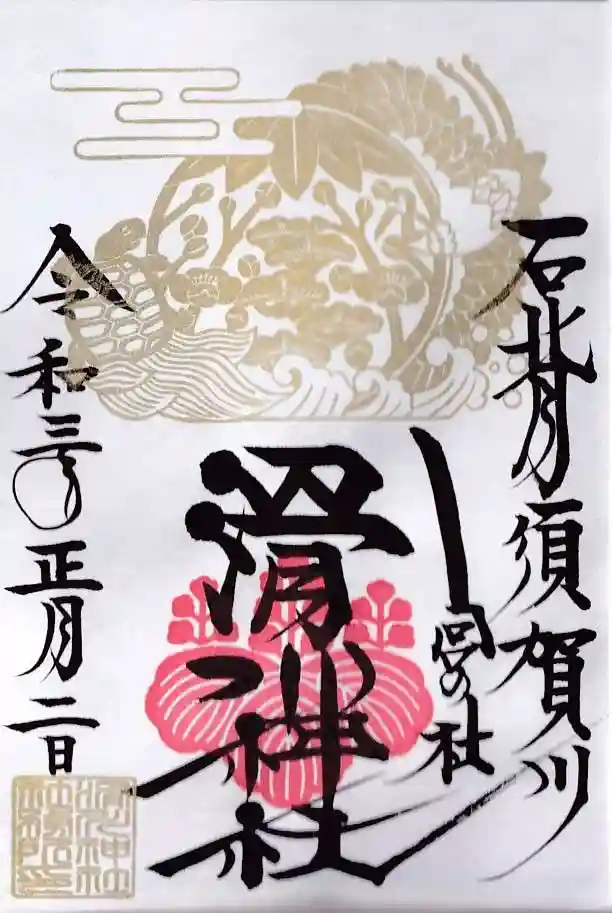 石背須賀川
の社
滑川神社
令和三年正月二日